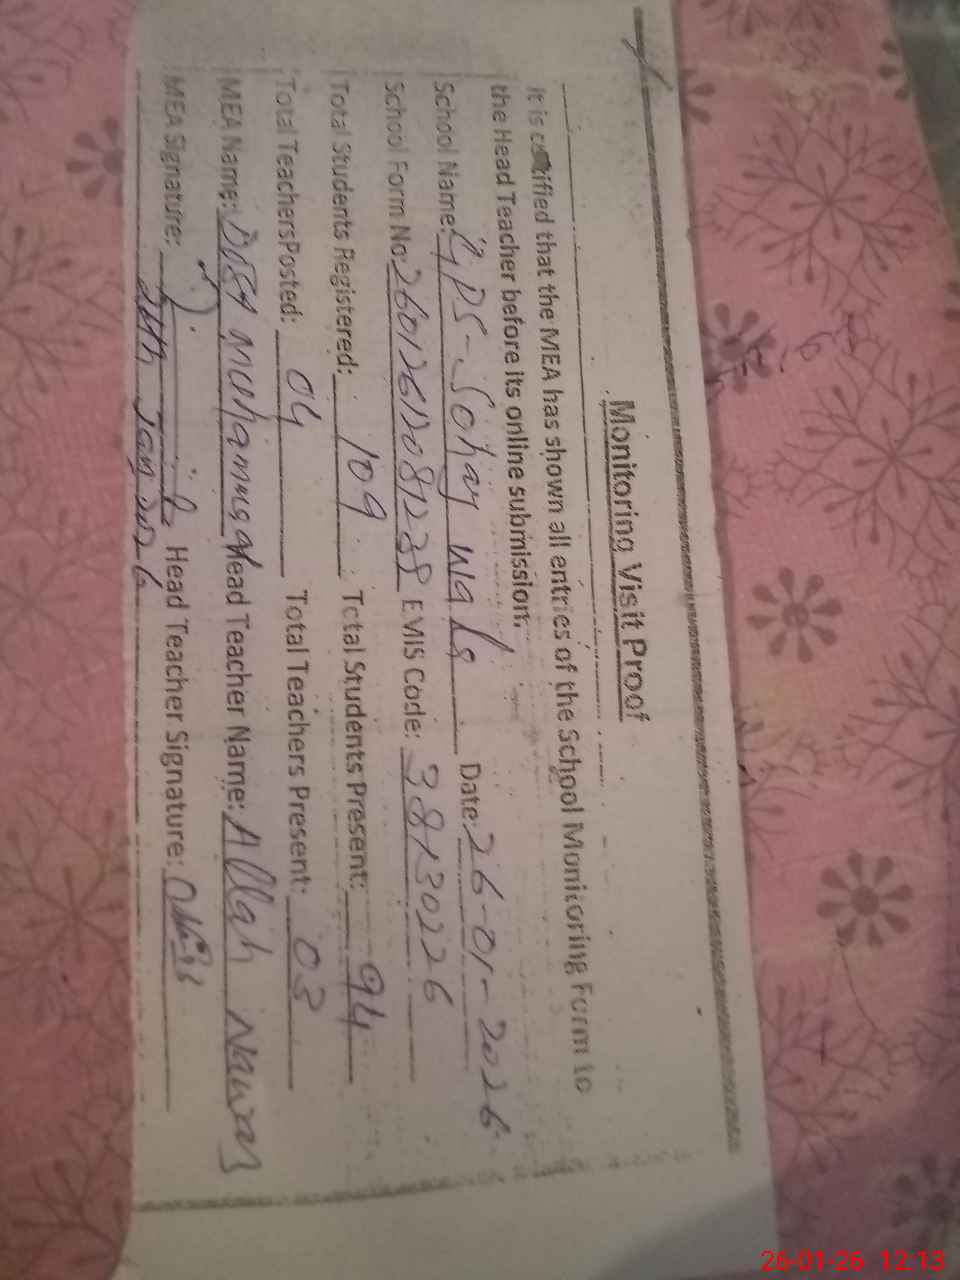 Monitoring Visit Proof
It is certified that the MEA has shown all entries of the School Monitoring Form to
the Head Teacher before its online submission.
School Name: GPS-Sohay wala Date: 26-01-2026
School Form No: 26012612081238 EMIS Code: 38130226
Total Students Registered: 109 Total Students Present: 94
Total TeachersPosted: 04 Total Teachers Present: 03
MEA Name: Dost Muhammad Head Teacher Name: Allah Nawaz
MEA Signature: Head Teacher Signature:
Jan 2026
26-01-26 12:13